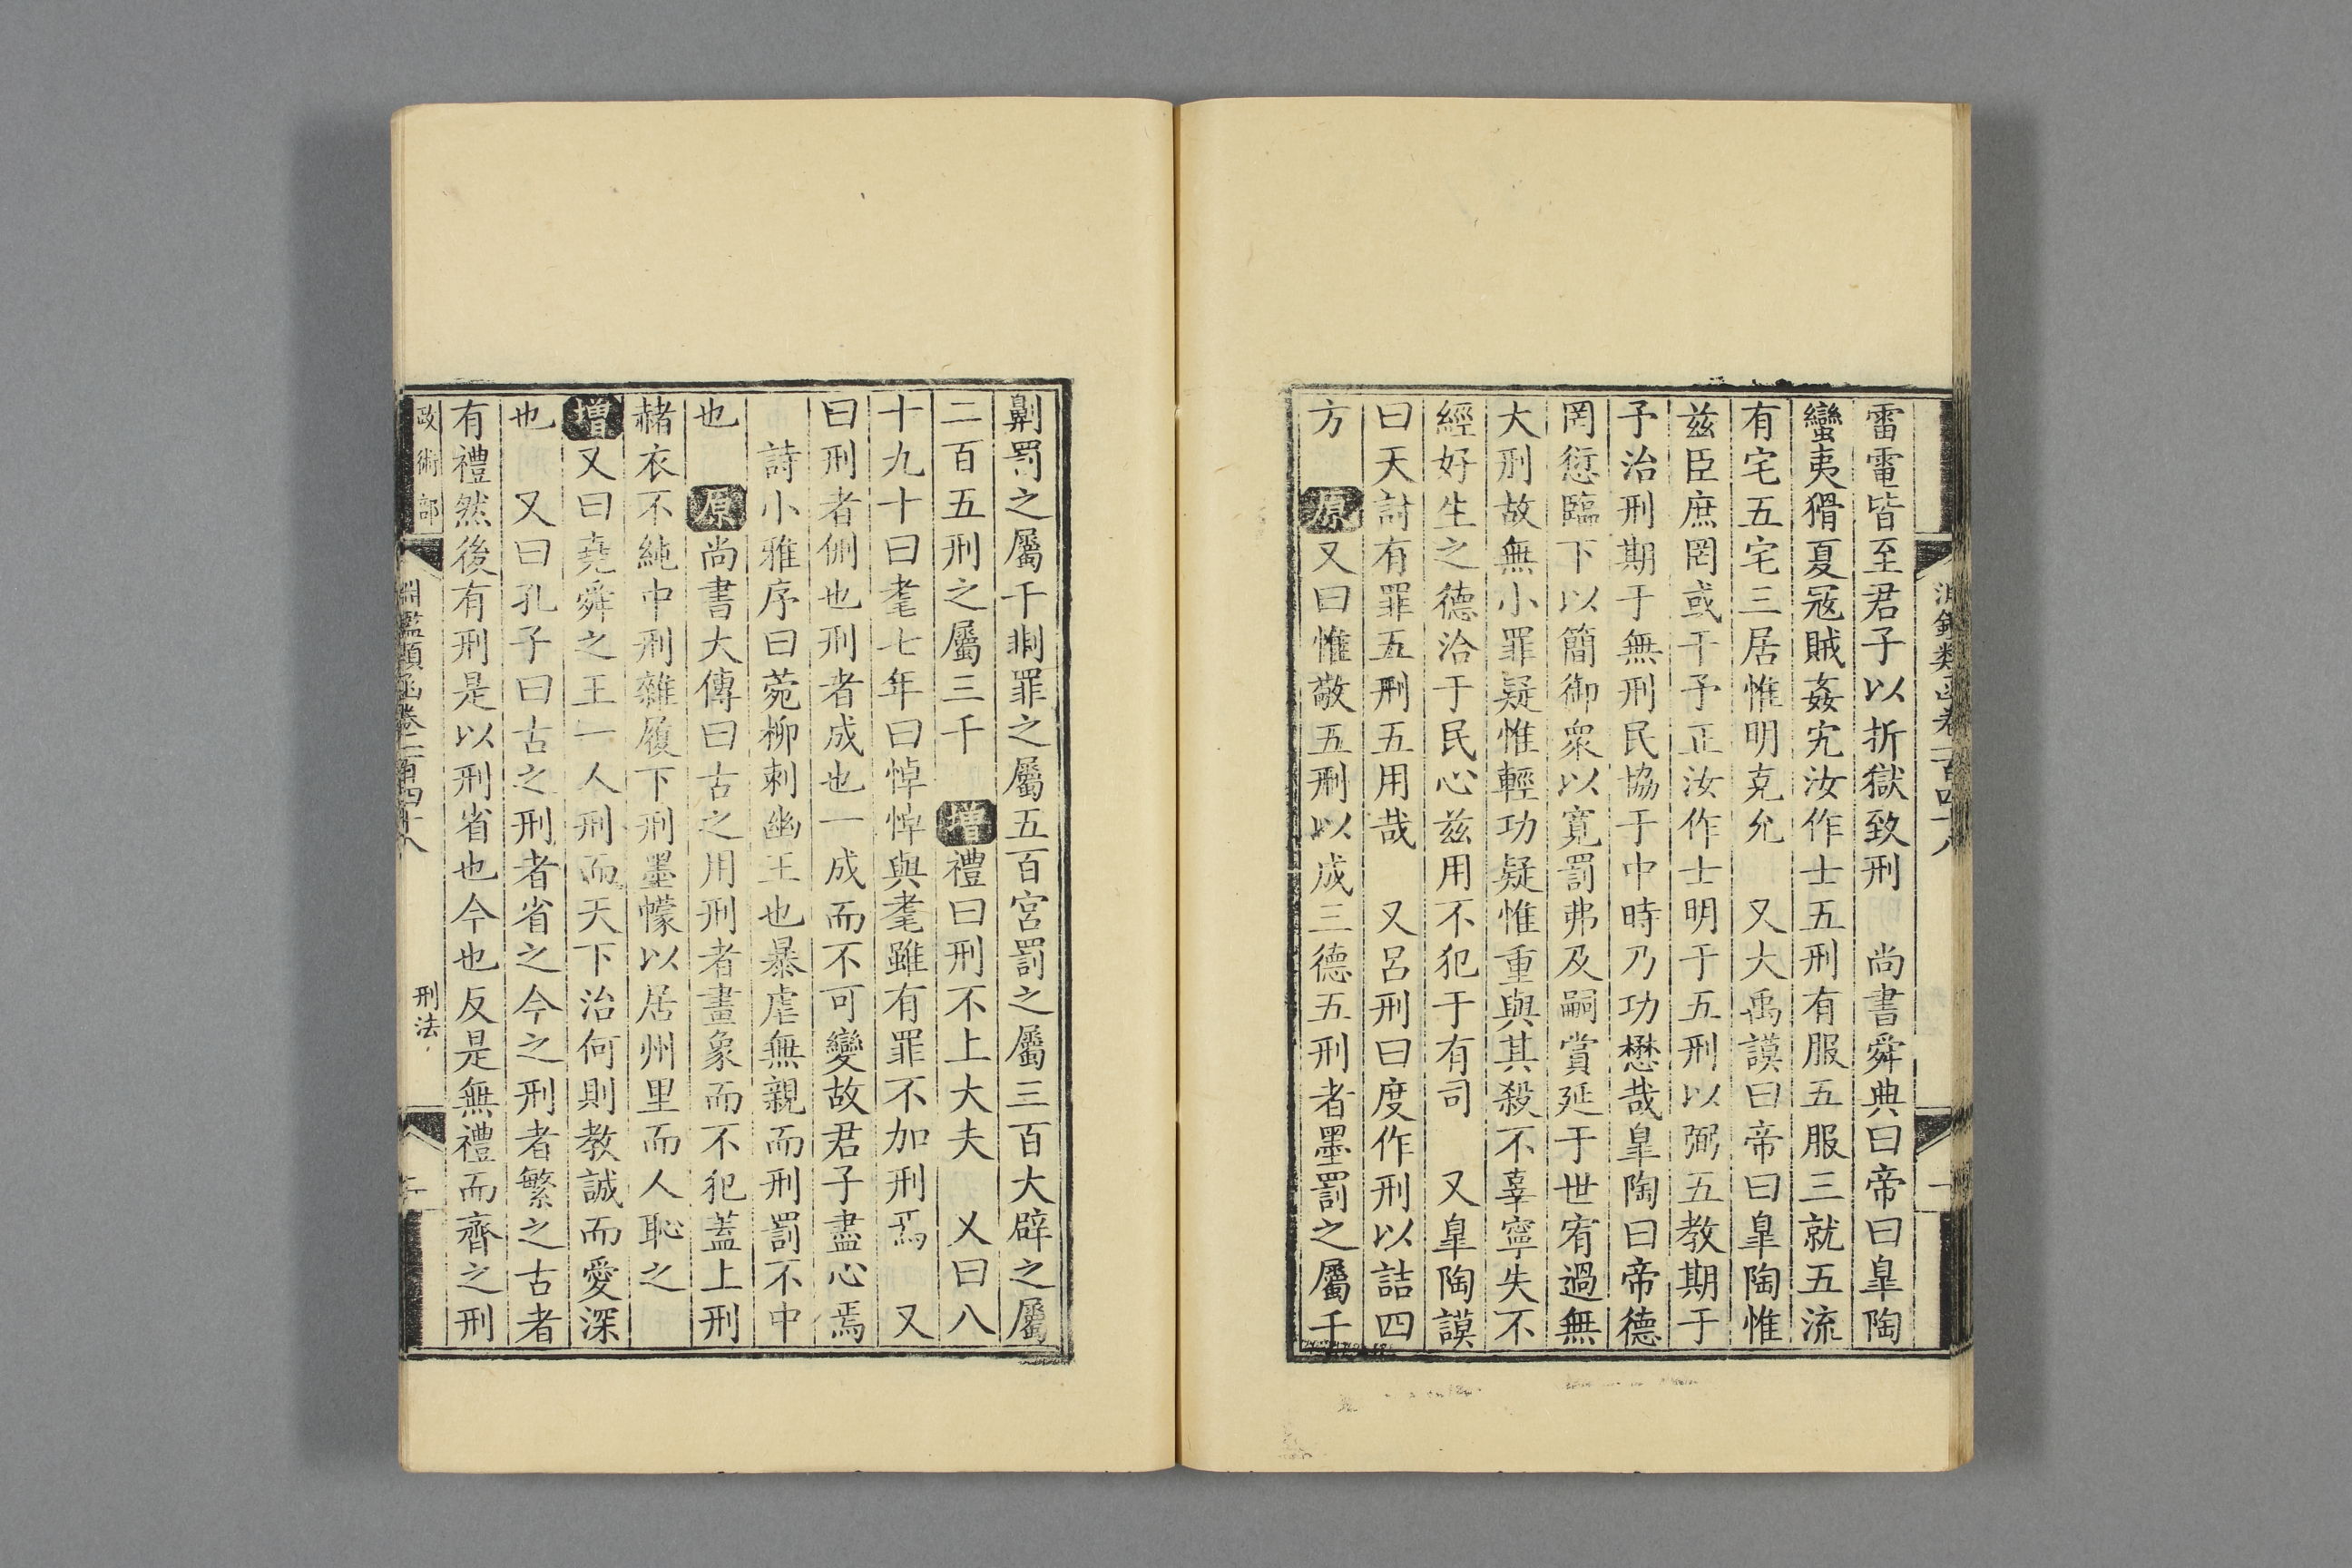 雷電皆至君子以折獄致刑　尚書舜典曰帝曰臯陶
蠻夷猾夏宼賊姦宄汝作士五刑有服五服三就五流
有宅五宅三居惟明克允　又大禹謨曰帝曰臯陶惟
兹臣庶罔或干予正汝作士明于五刑以弼五教期于
予治刑期于無刑民協于中時乃功懋哉臯陶曰帝德
罔愆臨下以簡御衆以寛罰弗及嗣賞延于世宥過無
大刑故無小罪疑惟輕功疑惟重與其殺不辜寧失不
經好生之德洽于民心兹用不犯于有司　又臯陶謨
曰天討有罪五刑五用哉　又呂刑曰度作刑以詰四
方　原又曰惟敬五刑以成三德五刑者墨罰之屬千
劓罰之屬千剕罪之屬五百宮罰之屬三百大辟之屬
二百五刑之屬三千　增禮曰刑不上大夫　又曰八
十九十曰耄七年曰悼悼與耄雖有罪不加刑焉　又
曰刑者侀也刑者成也一成而不可變故君子盡心焉
詩小雅序曰菀柳刺幽王也暴虐無親而刑罰不中
也　原尚書大傳曰古之用刑者畫象而不犯蓋上刑
赭衣不純中刑雜屨下刑墨幪以居州里而人恥之
增又曰堯舜之王一人刑而天下治何則教誠而愛深
也　又曰孔子曰古之刑者省之今之刑者繁之古者
有禮然後有刑是以刑省也今也反是無禮而齊之刑
政術部　淵鑑類函卷二百四十八　刑法